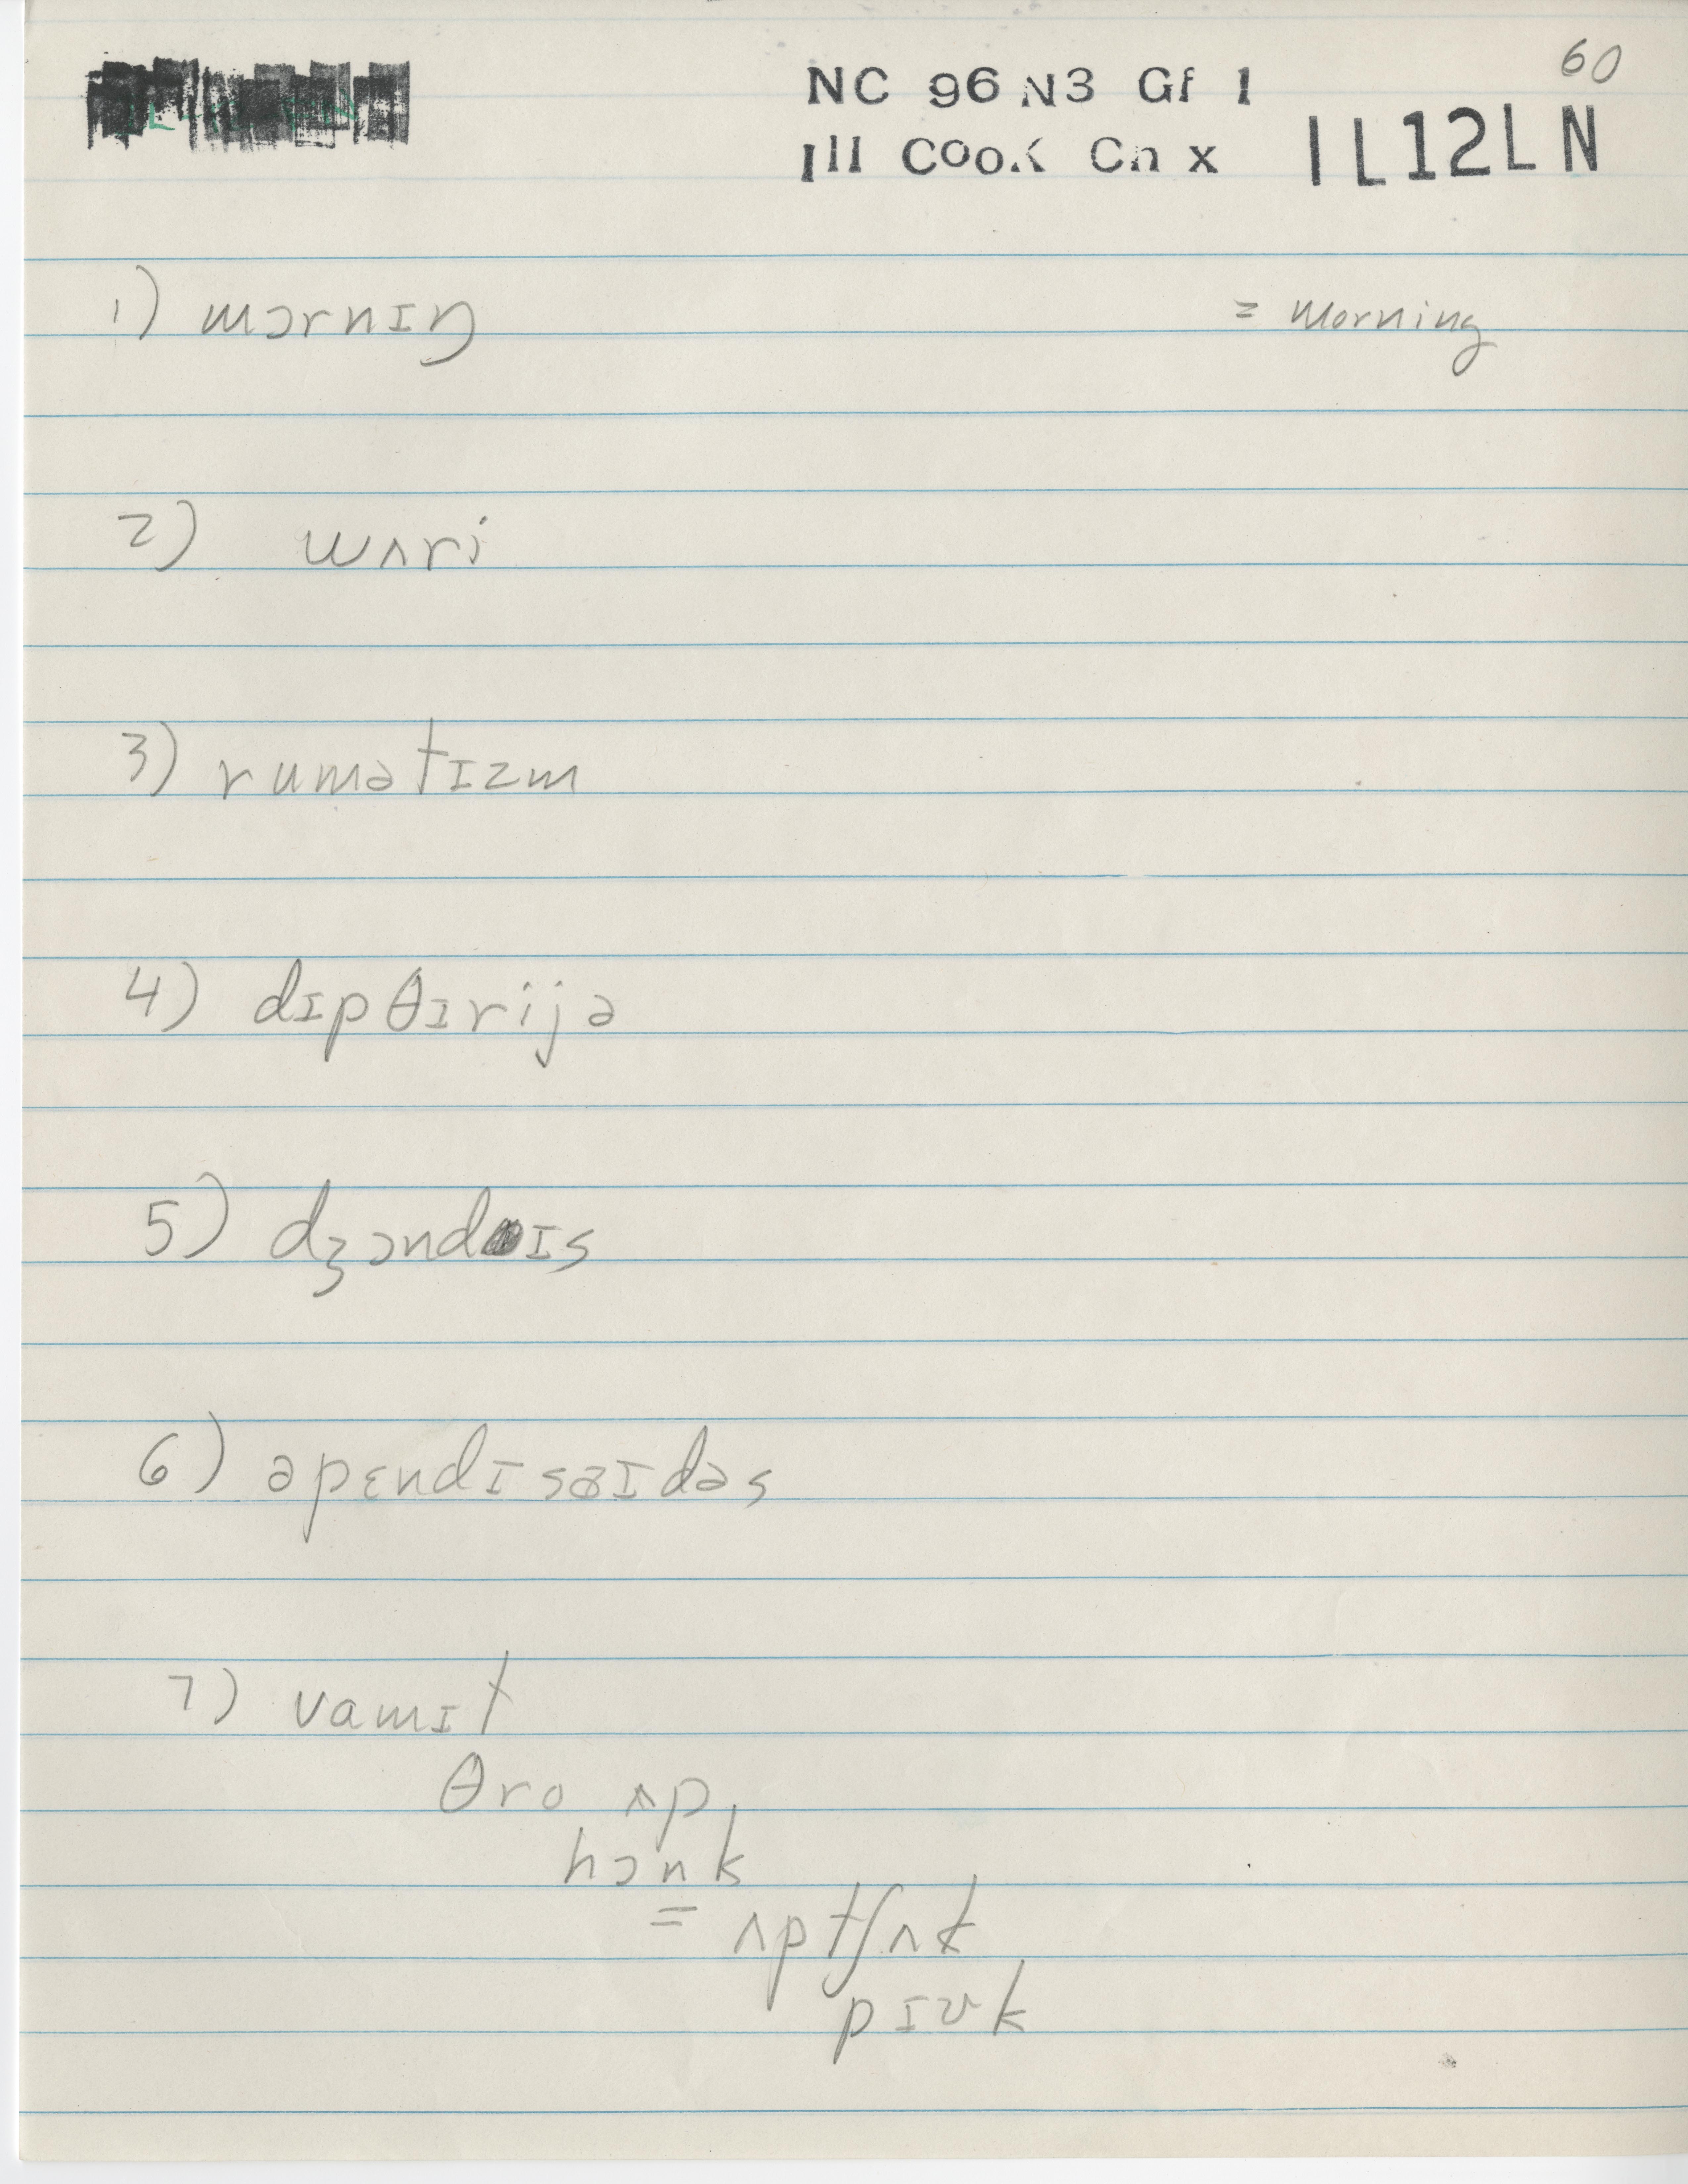 60
NC 96 N3 Gf 1
Ill Cook Cn x IL12LN
1) mɔrnɪŋ = Morning
2) wʌri
3) rumətɪzm
4) dɪpθɪrijə
5) dʒɔndɪs
6) əpɛndɪsaɪdəs
7) vamɪt
θro ʌp
hɔnk
= ʌptʃʌk
pɪʊk